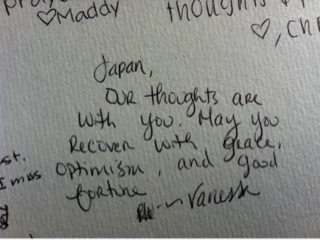 ♡Maddy
thoughts
♡, Chr
Japan,
Our thoughts are
with you. May you
Recover with grace,
optimism, and good
fortune
Vanessa
st.
I miss